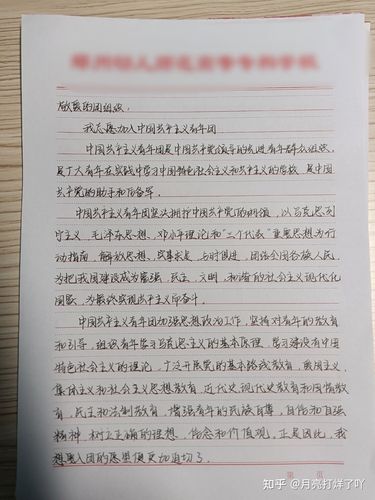 敬爱的团组织：
我志愿加入中国共产主义青年团
中国共产主义青年团是中国共产党领导的先进青年群众组织，
是广大青年在实践中学习中国特色社会主义和共产主义的学校，是中国
共产党的助手和后备军。
中国共产主义青年团坚决拥护中国共产党的纲领，以马克思列
宁主义、毛泽东思想、邓小平理论和"三个代表"重要思想为行
动指南，解放思想，实事求是，与时俱进，团结全国各族人民，
为把我国建设成为富强、民主、文明、和谐的社会主义现代化
国家，为最终实现共产主义而奋斗。
中国共产主义青年团加强思想政治工作，坚持对青年的教育
和引导，组织青年学习马克思主义的基本原理，学习建设有中国
特色社会主义的理论，广泛开展党的基本路线教育，爱国主义，
集体主义和社会主义思想教育，近代史现代史教育和国情教
育，民主和法制教育，增强青年的民族自尊、自信和自强
精神，树立正确的理想、信念和价值观，正是因此，我
想要入团的愿望便更加迫切了。
第 页
知乎 @月亮打烊了吖